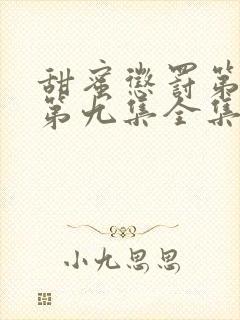 甜蜜惩罚第
第九集全集
小九思思